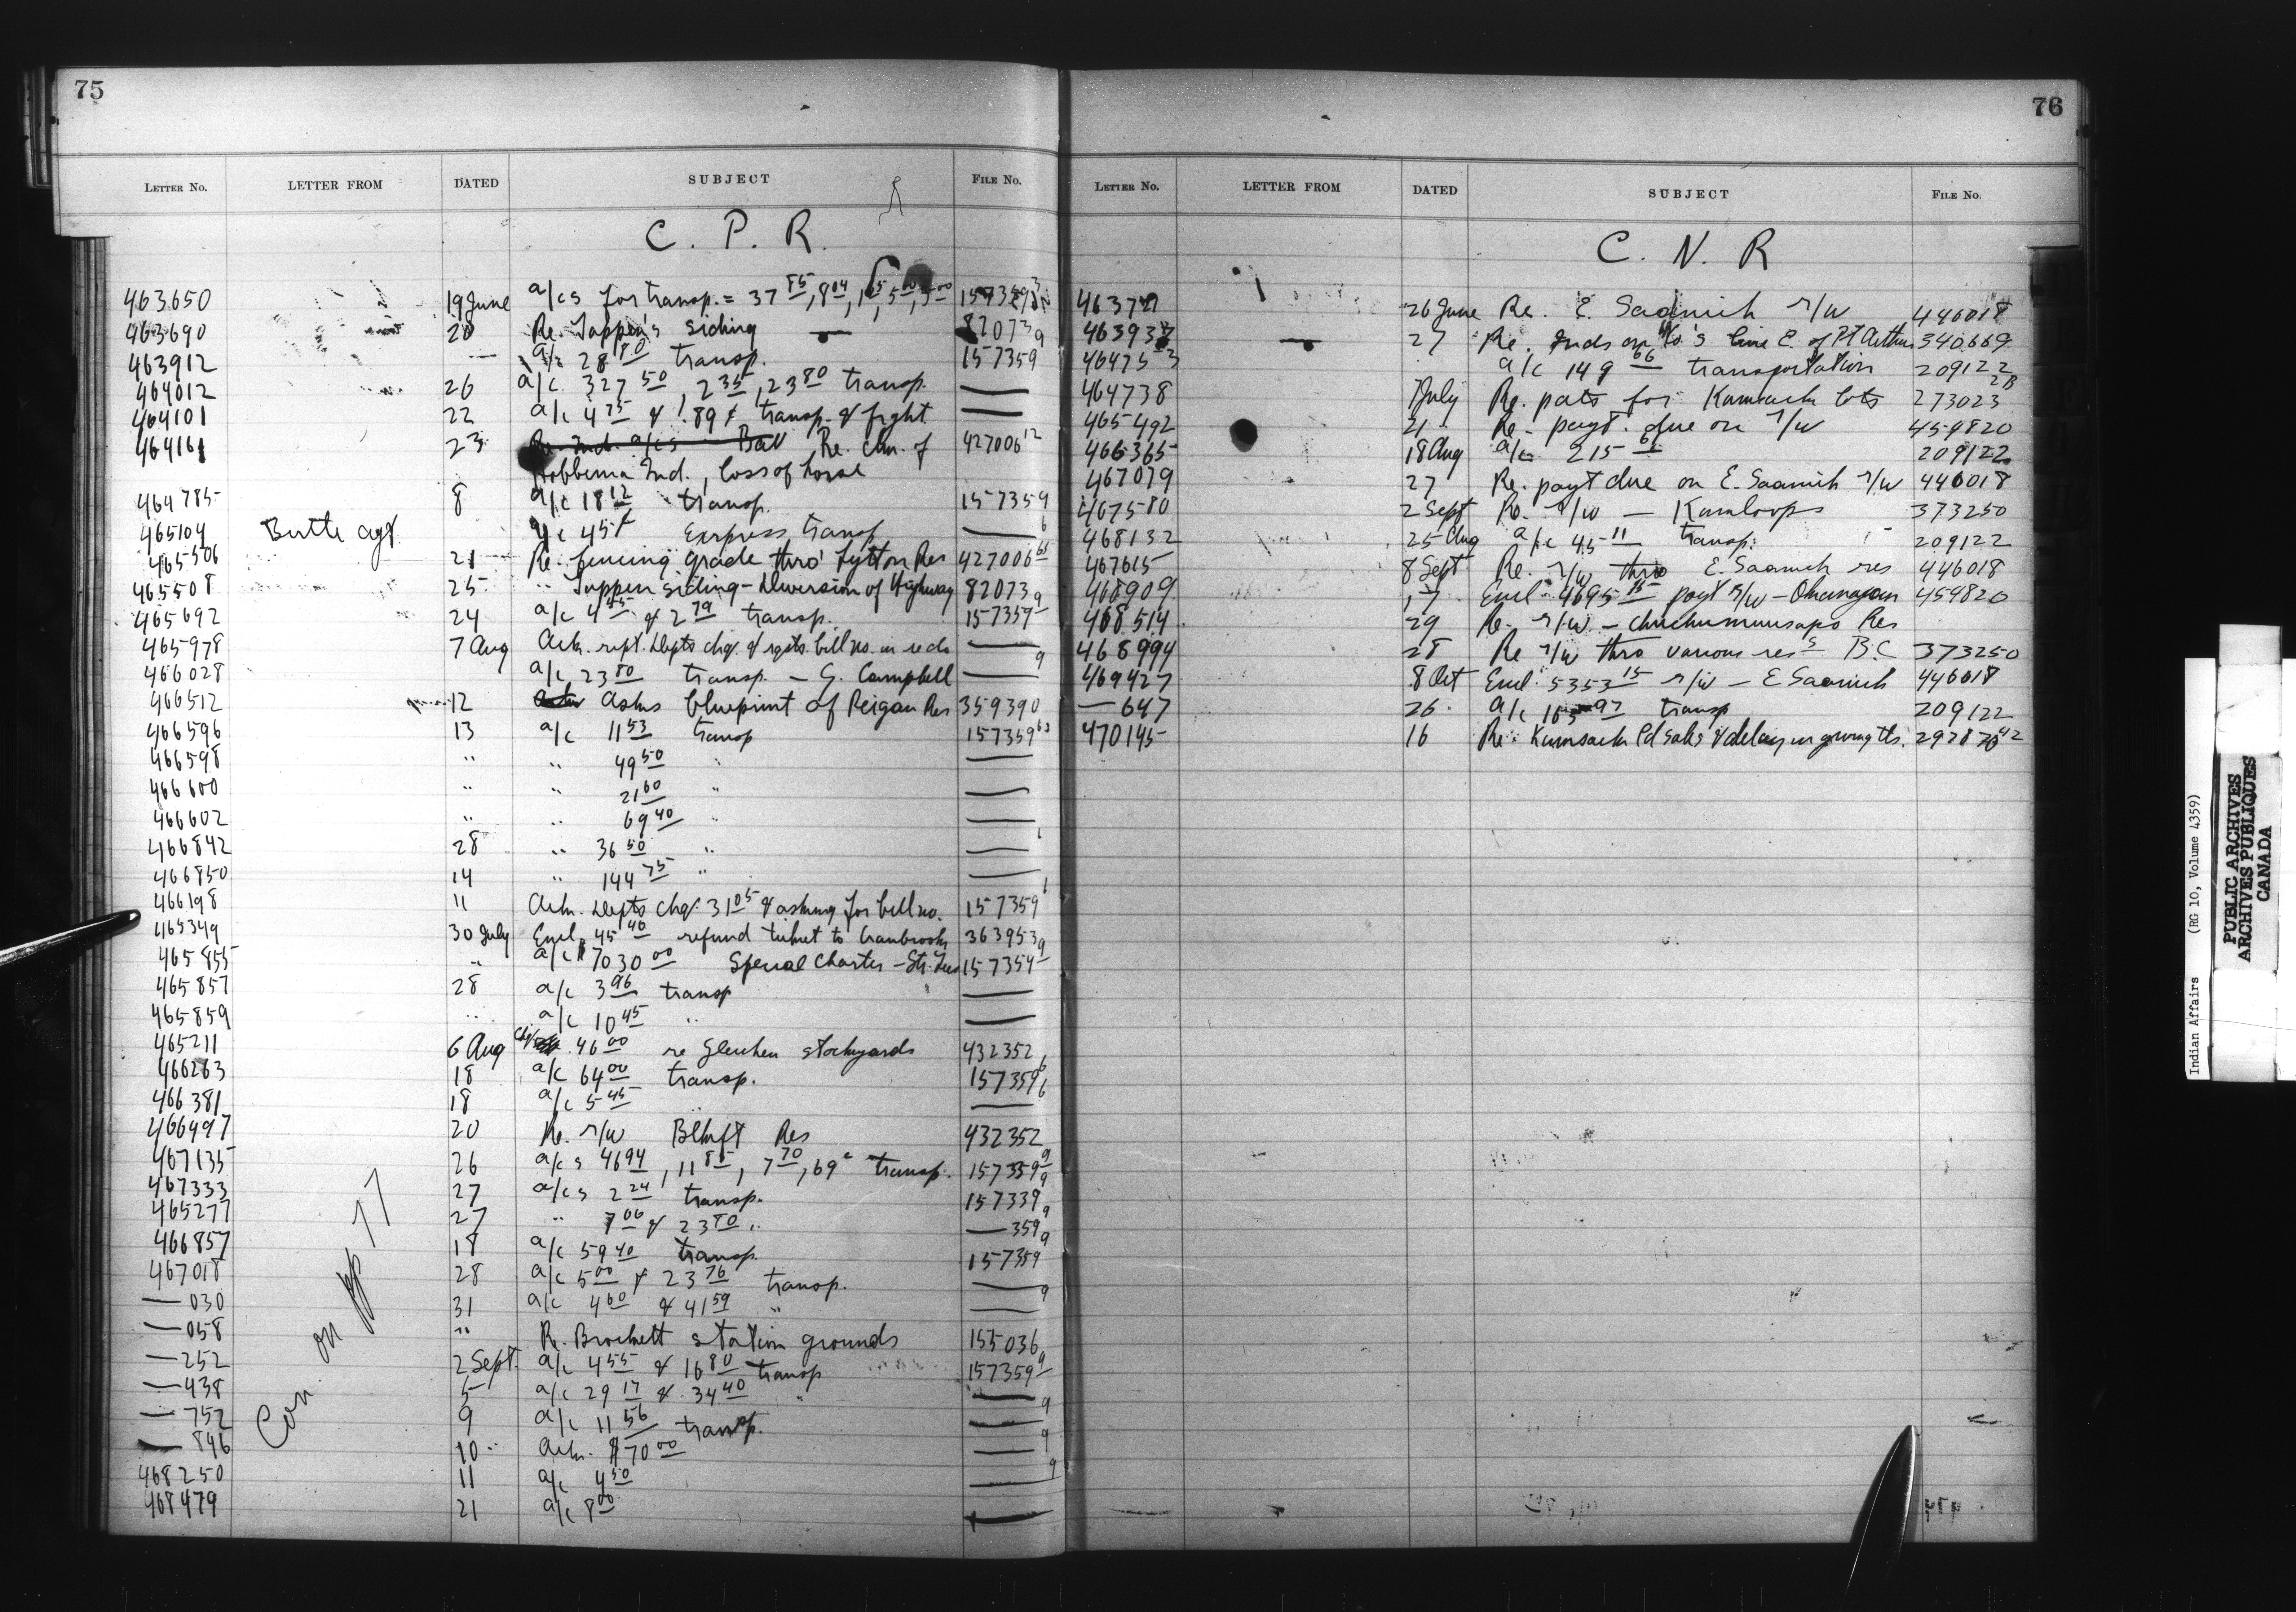 75
LETTER NO. LETTER FROM DATED SUBJECT FILE No.
C. P. R.
463650 19 June a/cs for transp. = 37 85, 8 04, 157359
463690 20 Re. Tappen's siding 82073 9
463912 a/c 28 80 transp. 157359
464012 26 a/c 327 50, 2 35, 23 80 transp. —
464101 22 a/c 4 75 & 1.89 ¢ transp. & frght —
464161 23 Re. Ind. a/cs Re. clm. of 427006 12
Hobbema Ind., loss of horse
464785 8 a/c 18 12 transp. 157359
465104 Butte agt a/c 45 ¢ Express transp — 6
465506 21 Re. fencing grade thro' Lytton Res 427006 65
465508 25 " Tappen siding - Diversion of Highway 82073 9
465692 24 a/c 4 45 & 2 79 transp. 157359
465978 7 Aug Ack. rept. Depts chq. & rqsts. bill no. in reds —
466028 a/c 23 80 transp. — G. Campbell — 9
466512 12 Asks blueprint of Peigan Res 359390
466596 13 a/c 11 53 transp 157359 63
466598 " " 49 50 " —
466600 " " 21 60 " —
466602 " " 69 40 " —
466842 28 " 36 50 " —
466850 14 " 144 75 " —
466198 11 Ack. Depts chq. 31 05 & asking for bill no. 157359
465349 30 July Encl. 45 40 refund ticket to Cranbrook 363953 9
465855 " a/c $7030 00 Special Charter - Str. 157359
465857 28 a/c 3 96 transp —
465859 " a/c 10 45 " —
465211 6 Aug Chq. 46 00 re Gleichen stockyards 432352
466263 18 a/c 64 00 transp. 157359 6
466381 18 a/c 5 45 — 6
466497 20 Re. r/w Blkft Res 432352
467135 26 a/cs 46 94, 11 85, 7 70, 69 c transp. 157359 9
467333 27 a/cs 2 24 transp. 157339 9
465277 27 " 7 00 & 23 80 " — 359 9
466857 18 a/c 59 40 transp. 157359 9
467018 28 a/c 5 00 & 23 76 transp. —
— 030 31 a/c 4 60 & 41 59 " — 9
— 058 " R. Brockett station grounds 155036
— 252 2 Sept. a/c 4 55 & 16 80 transp 157359 9
— 438 5 a/c 29 17 & 34 40 " —
— 752 9 a/c 11 56 transp. — 9
— 896 10 " Ack. $70 00 — 9
468250 11 a/c 4 50 — 9
468479 21 a/c 8 00 —
Con. on pp 77
76
LETTER NO. LETTER FROM DATED SUBJECT FILE No.
C. N. R
46372 26 June Re. E. Saanich r/w 446018
463937 27 Re. Inds on Co's line E. of Pt Arthur 340669
46475 a/c 149 66 transportation 209122
464738 July Re. pats for Kamsack lots 273023 2B
465492 21 Re. payt. due on r/w 459820
466365 18 Aug a/c 215 209122
467079 27 Re. payt due on E. Saanich r/w 446018
467580 2 Sept Re. r/w — Kamloops 373250
468132 25 Aug a/c 45 11 transp. 209122
467615 8 Sept Re. r/w thro E. Saanich res 446018
468909 17 Encl. 4695 15 payt r/w - Okanagan 459820
468514 29 Re. r/w - Res
468994 28 Re r/w thro various res s B.C 373250
469427 8 Oct Encl. 5353 15 r/w — E Saanich 446018
— 647 26 a/c 97 transp 209122
470145 16 Re. Kamsack ld sales & delay in giving tls. 29287 42
Indian Affairs (RG 10, Volume 4359)
PUBLIC ARCHIVES
ARCHIVES PUBLIQUES
CANADA